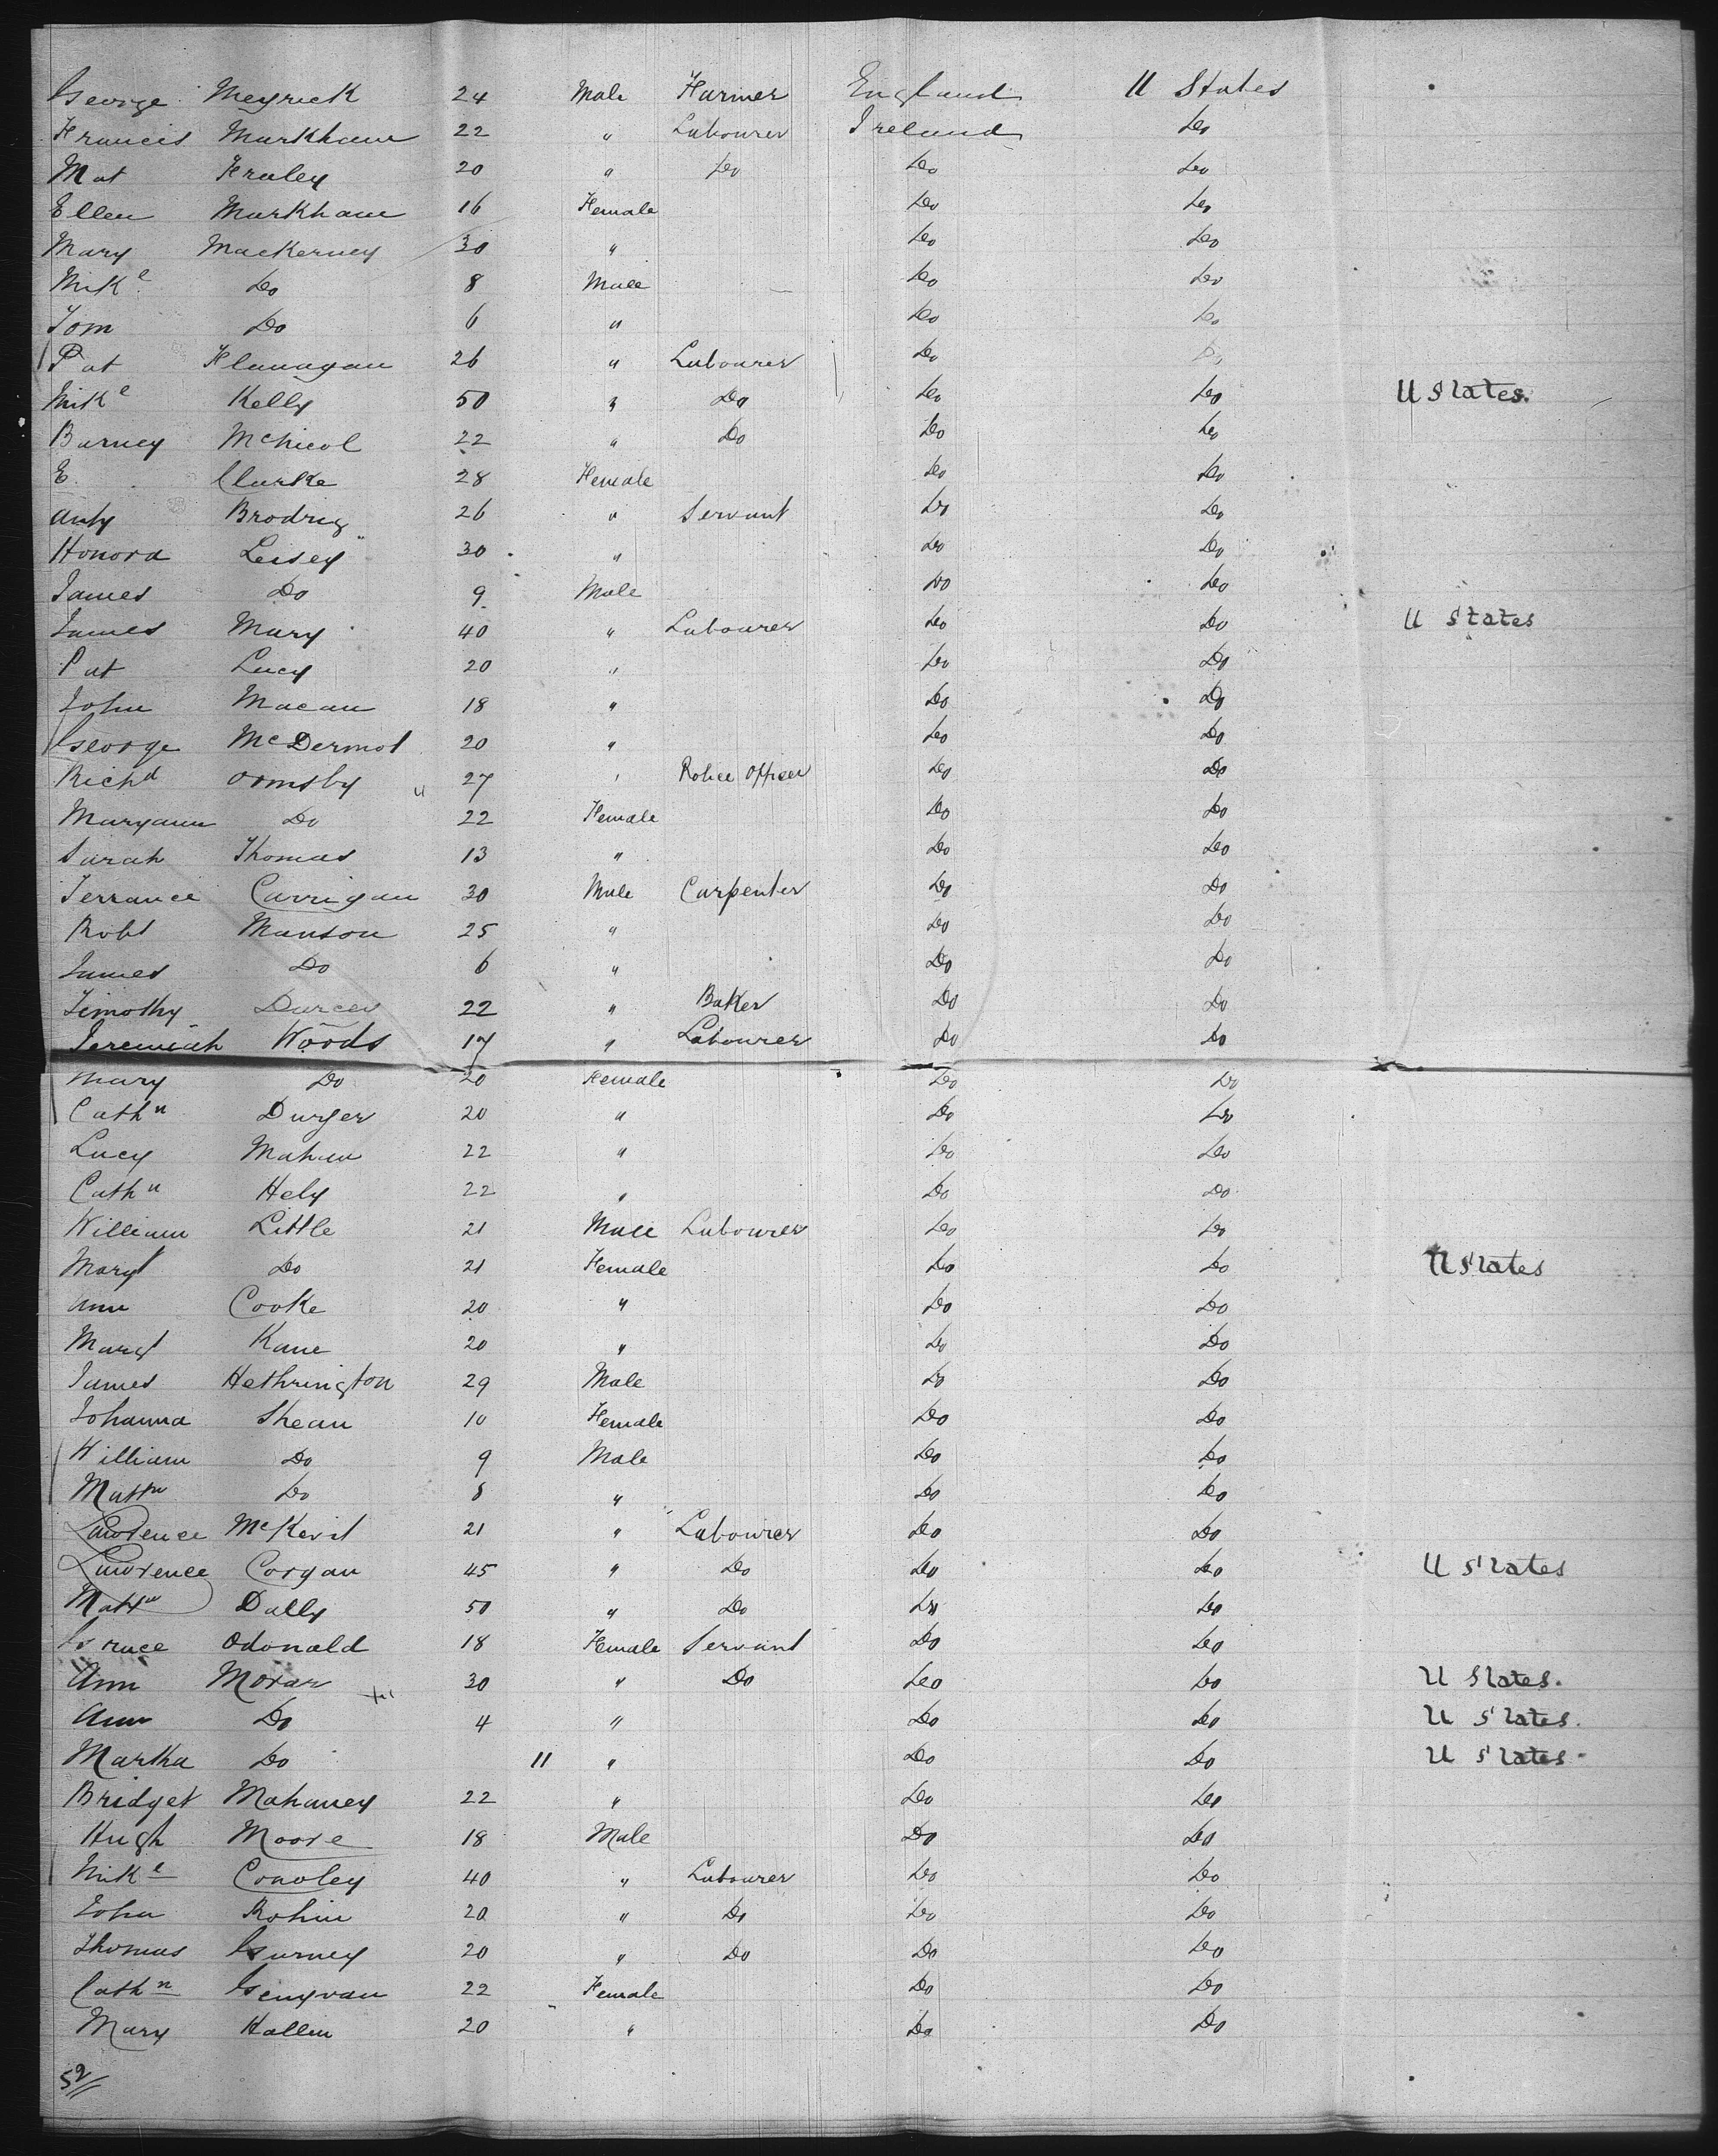 George Meyrick 24 Male Farmer England U States
Francis Markham 22 " Labourer Ireland Do
Mat Fraley 20 " Do Do Do
Ellen Markham 16 Female Do Do
Mary Mackerney 30 " Do Do
Mike Do 8 Male Do Do
Tom Do 6 " Do Do
Pat Flanagan 26 " Labourer Do Do
Mike Kelly 50 " Do Do Do U States.
Barney McNicol 22 " Do Do Do
E Clarke 28 Female Do Do
Anty Brodrig 26 " Servant Do Do
Honora Leisey 30 " Do Do
James Do 9 Male Do Do
James Mury 40 " Labourer Do Do U States
Pat Lucy 20 " Do Do
John Macan 18 " Do Do
George McDermot 20 " Do Do
Richd Ormsby 27 " Police Officer Do Do
Maryann Do 22 Female Do Do
Sarah Thomas 13 " Do Do
Terrance Carrigan 30 Male Carpenter Do Do
Robt Manson 25 " Do Do
James Do 6 " Do Do
Timothy Darcey 22 " Baker Do Do
Jeremiah Woods 17 " Labourer Do Do
Mary Do 20 Female Do Do
Cathn Durger 20 " Do Do
Lucy Mahan 22 " Do Do
Cathn Hely 22 " Do Do
William Little 21 Male Labourer Do Do
Margt Do 21 Female Do Do U States
Ann Cooke 20 " Do Do
Margt Kane 20 " Do Do
James Hethrington 29 Male Do Do
Johanna Shean 10 Female Do Do
William Do 9 Male Do Do
Mattw Do 8 " Do Do
Lawrence McKevit 21 " Labourer Do Do
Lawrence Corgan 45 " Do Do Do U States
Mattw Dally 50 " Do Do Do
Grace Odonald 18 Female Servant Do Do
Ann Moran 30 " Do Do Do U States.
Ann Do 4 " Do Do U States.
Martha Do 11 " Do Do U States.
Bridget Mahaney 22 " Do Do
Hugh Moore 18 Male Do Do
Mike Conoley 40 " Labourer Do Do
John Rohin 20 " Do Do Do
Thomas Gurney 20 " Do Do Do
Cathn 22 Female Do Do
Mary Hallin 20 " Do Do
52